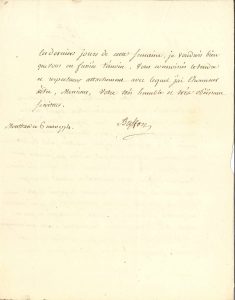 les derniers jours de cette semaine, je voudrois bien
que vous en fussiés témoin. Vous connoissés le tendre
et respectueux attachement avec lequel j'ai l'honneur
d'être, Monsieur, Votre très humble et très obéissant
serviteur.
Montbard ce 6
Buffon